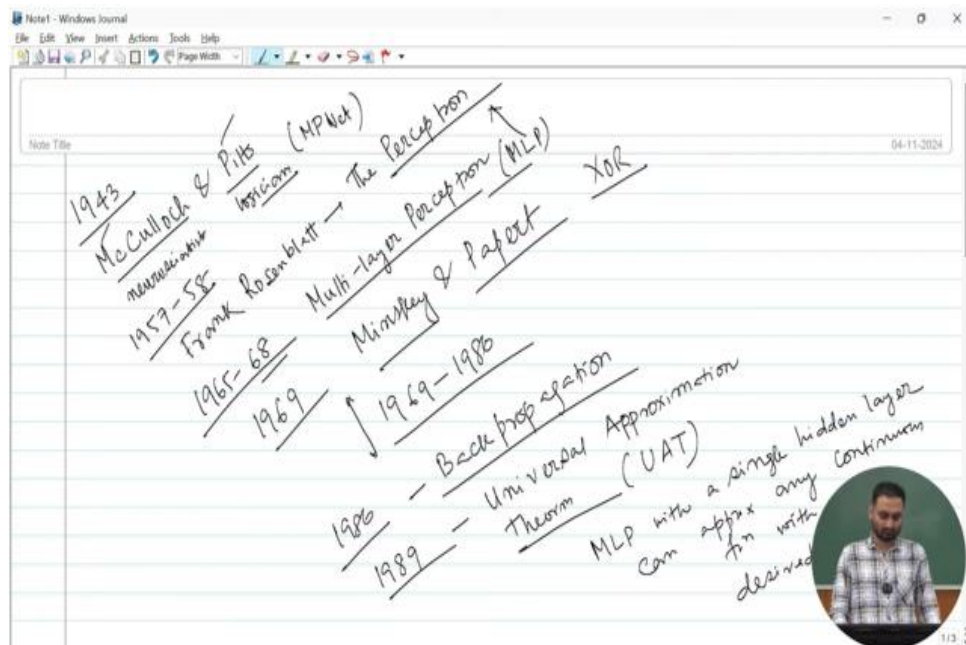 Note1 - Windows Journal
File Edit View Insert Actions Tools Help
Page Width
Note Title
04-11-2024
1943
McCulloch & Pitts (MPNet)
neuroscientist logician
1957-58
Frank Rosenblatt → The Perceptron
1965-68 Multi-layer Perceptron (MLP)
1969 Minskey & Papert XOR
1969-1986
1986 - Backpropagation
1989 - Universal Approximation
Theorm (UAT)
MLP with a single hidden layer
can appx any continuous
fn with
desired
1/3